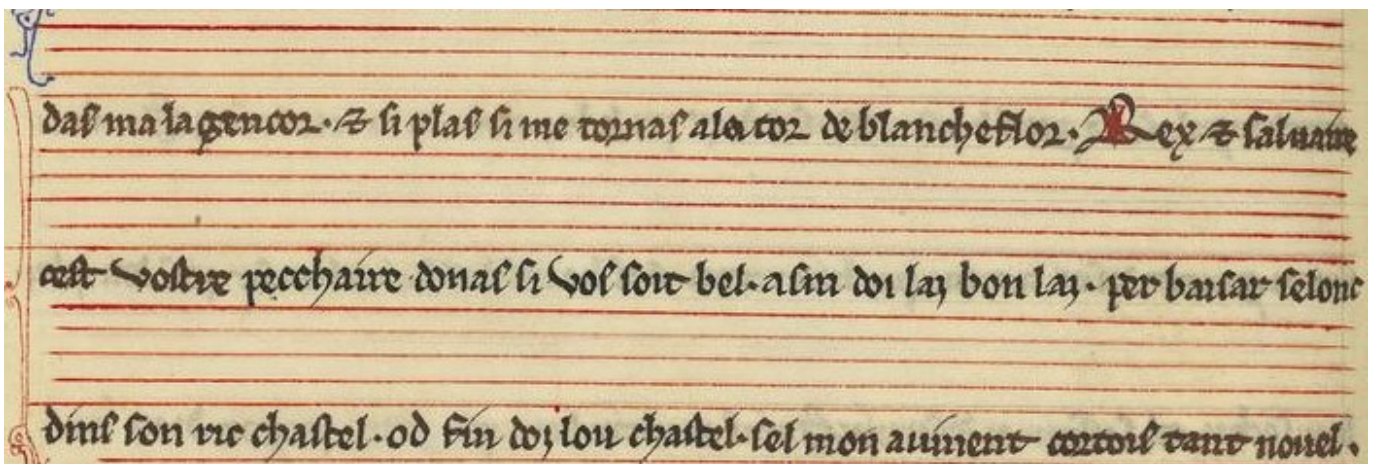 das ma la gencor · ⁊ si plas si me tornas ala tor de blancheflor · Rex ⁊ saluaire
cest vostre pecchaire donas si vos soit bel · asin doi laz bon laz · per baisar selonc
dins son ric chastel · od fin doz lou chastel · sel mon auinent cortois tant nouel ·